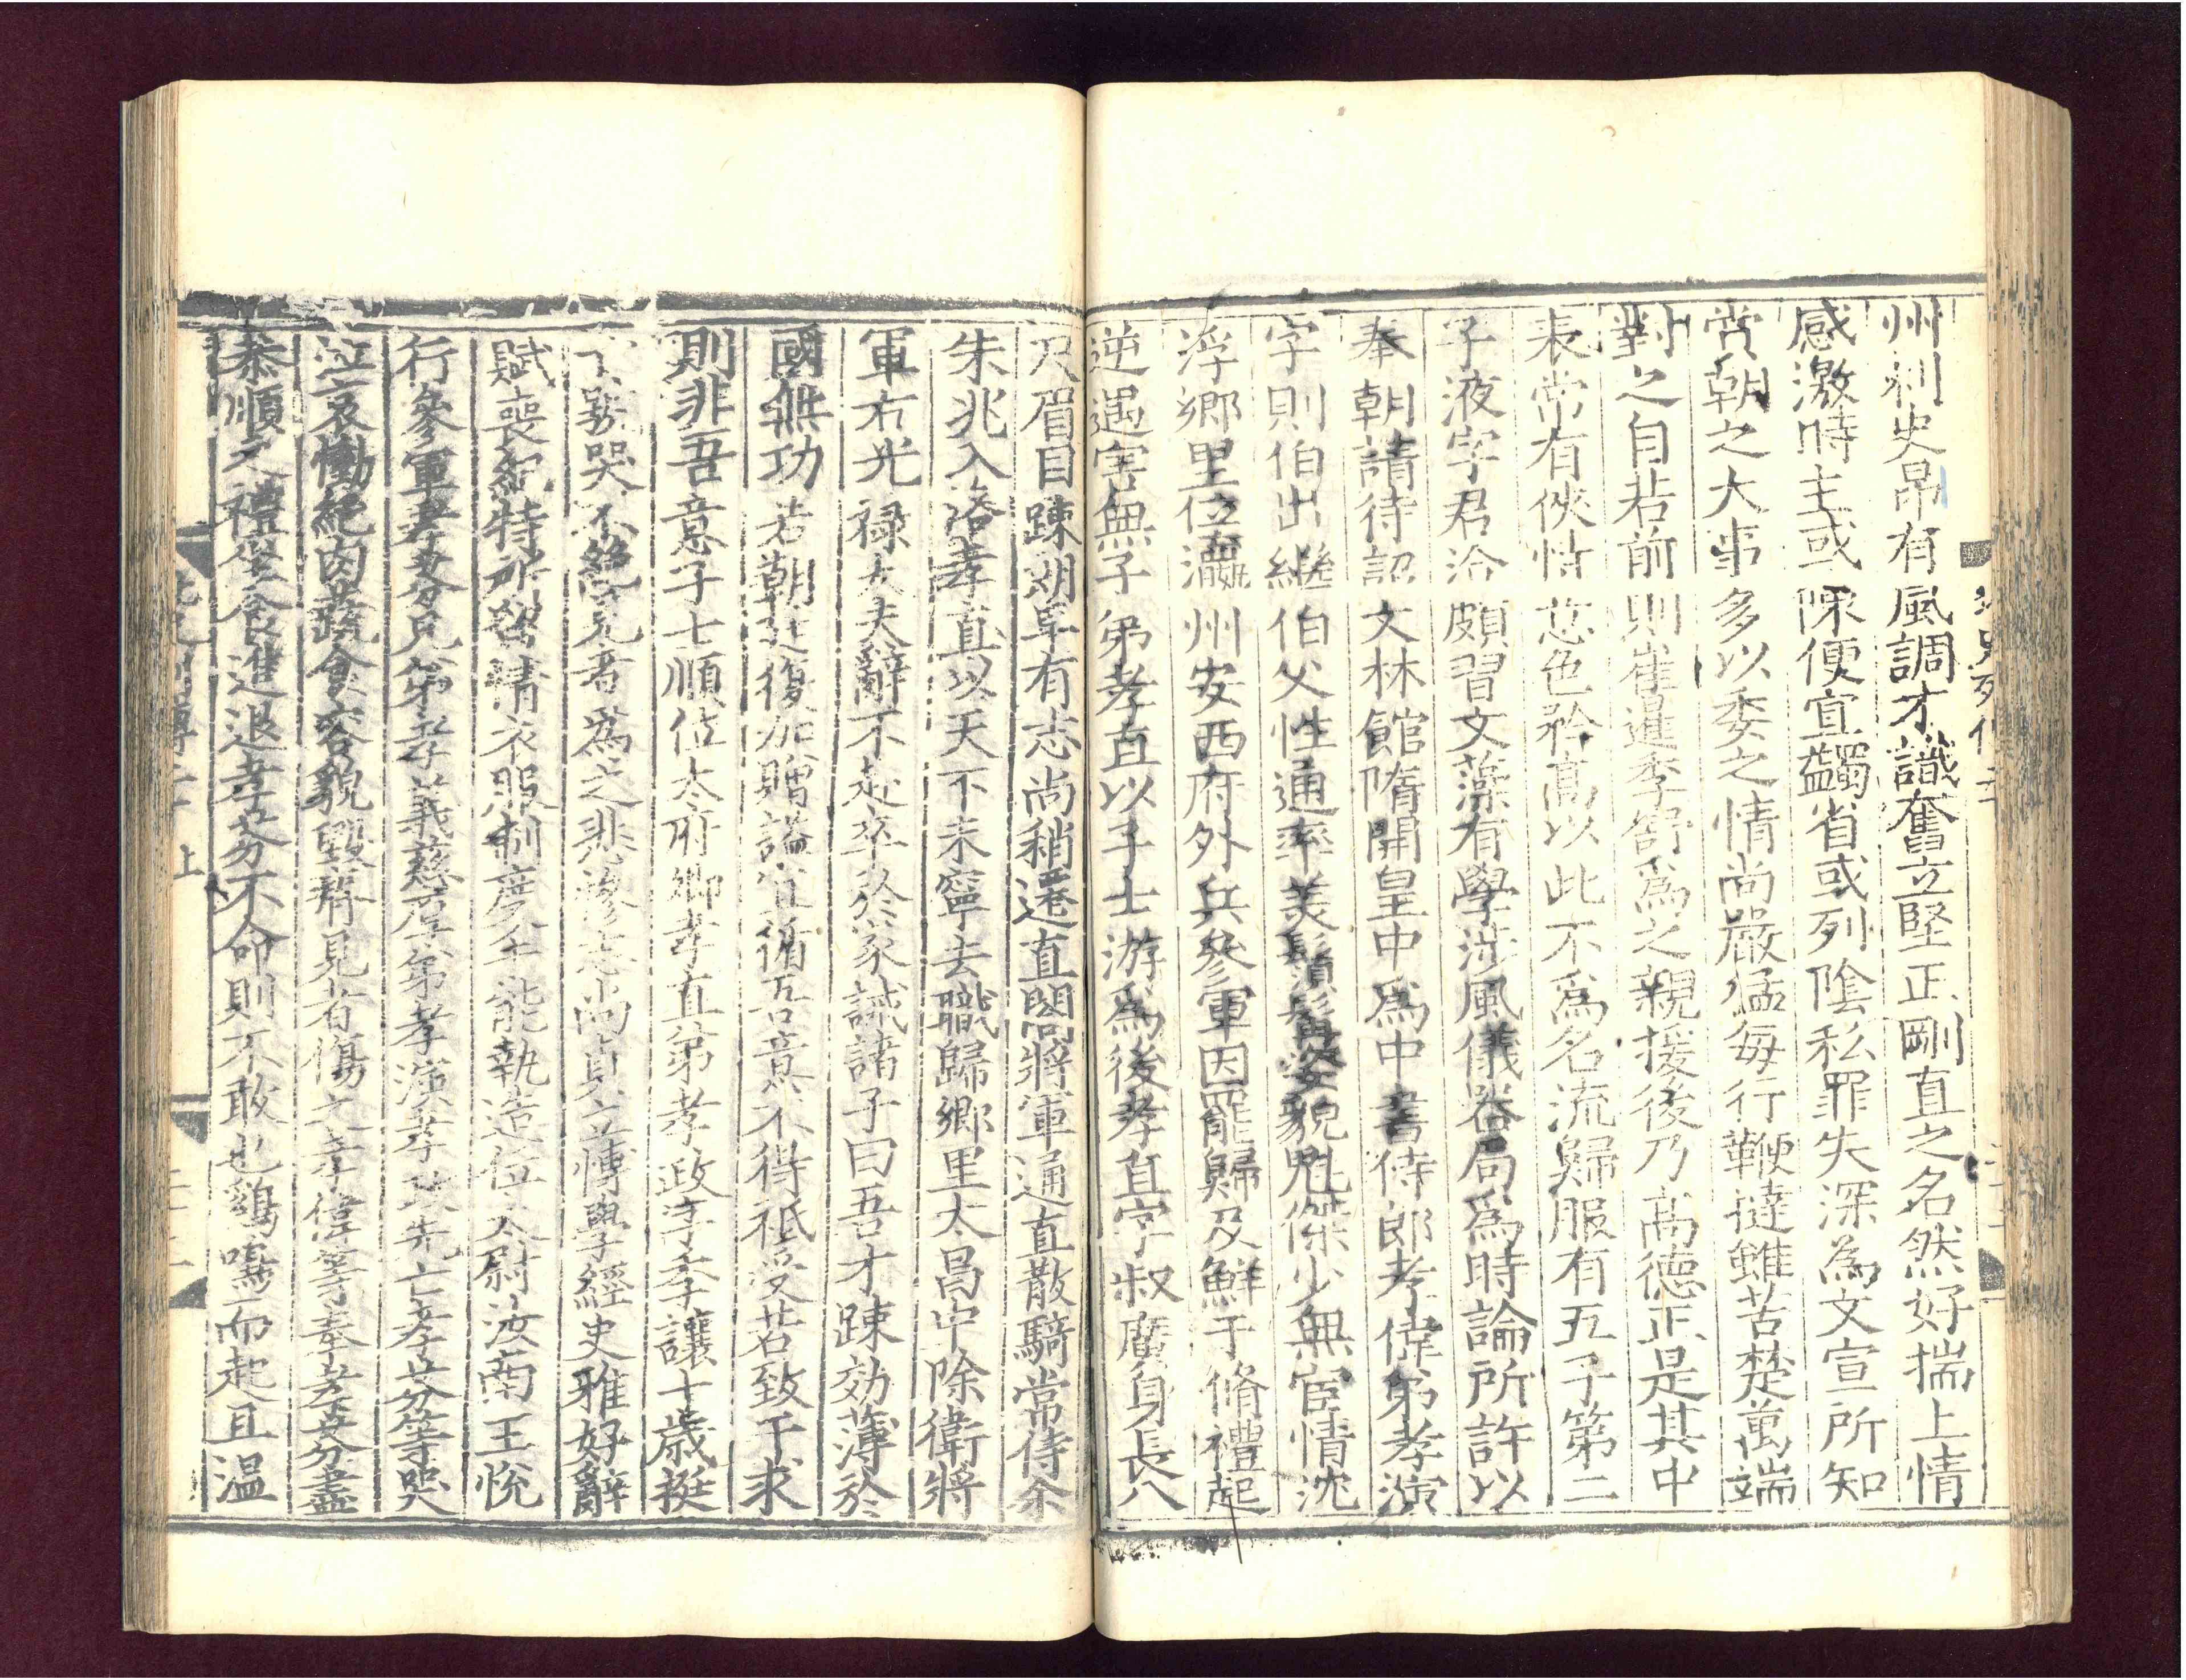 州刺史昂有風調才識奮立堅正剛直之名然好揣上情
感激時主或陳便宜蠲省或列陰私罪失深為文宣所知
賞朝之大事多以委之情尚嚴猛每行鞭撻雖苦楚萬端
對之自若前則崔暹季舒爲之親援後乃高德正是其中
表常有俠恃意色矜高以此不爲名流歸服有五子第二
子液字君洽頗習文藻有學涉風儀器局爲時論所許以
奉朝請待詔文林館隋開皇中爲中書侍郎孝偉弟孝演
字則伯出繼伯父性通率美鬚髯姿貌魁傑少無宦情沈
浮鄉里位瀛州安西府外兵參軍因罷歸及鮮于脩禮起
逆遇害無子弟孝直以子士游爲後孝直字叔廣身長八
尺眉目踈朗早有志尚稍遷直閤將軍通直散騎常侍尒
朱兆入洛孝直以天下未寧去職歸鄉里太昌中除衛將
軍右光祿大夫辭不赴卒於家誡諸子曰吾才踈効薄於
國無功若朝廷復加贈謚宜循吾意不得祗受若致干求
則非吾意子士順位太府卿孝直弟孝政字季讓十歲挺
亡號哭不絕見者為之悲慘志尚貞立博學經史雅好辭
賦喪紀特所留情衣服制度手能執造位太尉汝南王悅
行參軍孝芬兄弟孝義慈厚弟孝演孝政先亡孝芬等哭
泣哀慟絕肉蔬食容貌毀瘠見者傷之孝偉等奉孝芬盡
恭順之禮坐食進退孝芬不命則不敢也鷄鳴而起且溫
北史列傳二十
北史列傳二十 上